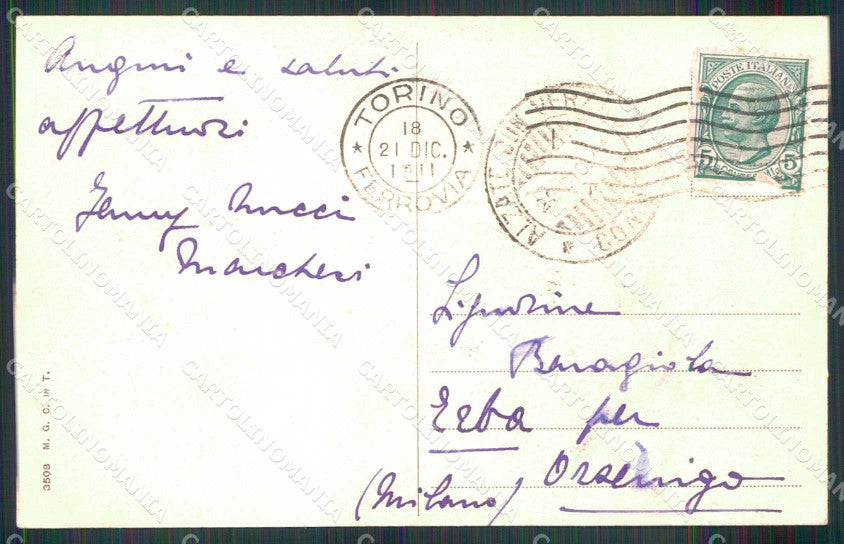 Auguri e saluti
affettuosi
Fanny Nucci
Marchesi
TORINO
18
21 DIC.
1911
FERROVIA
POSTE ITALIANE
5 5
Signorine
Baragiola
Erba per
Orsenigo
(Milano)
3508 M. G. C. in T.
CARTOLINOMANIA